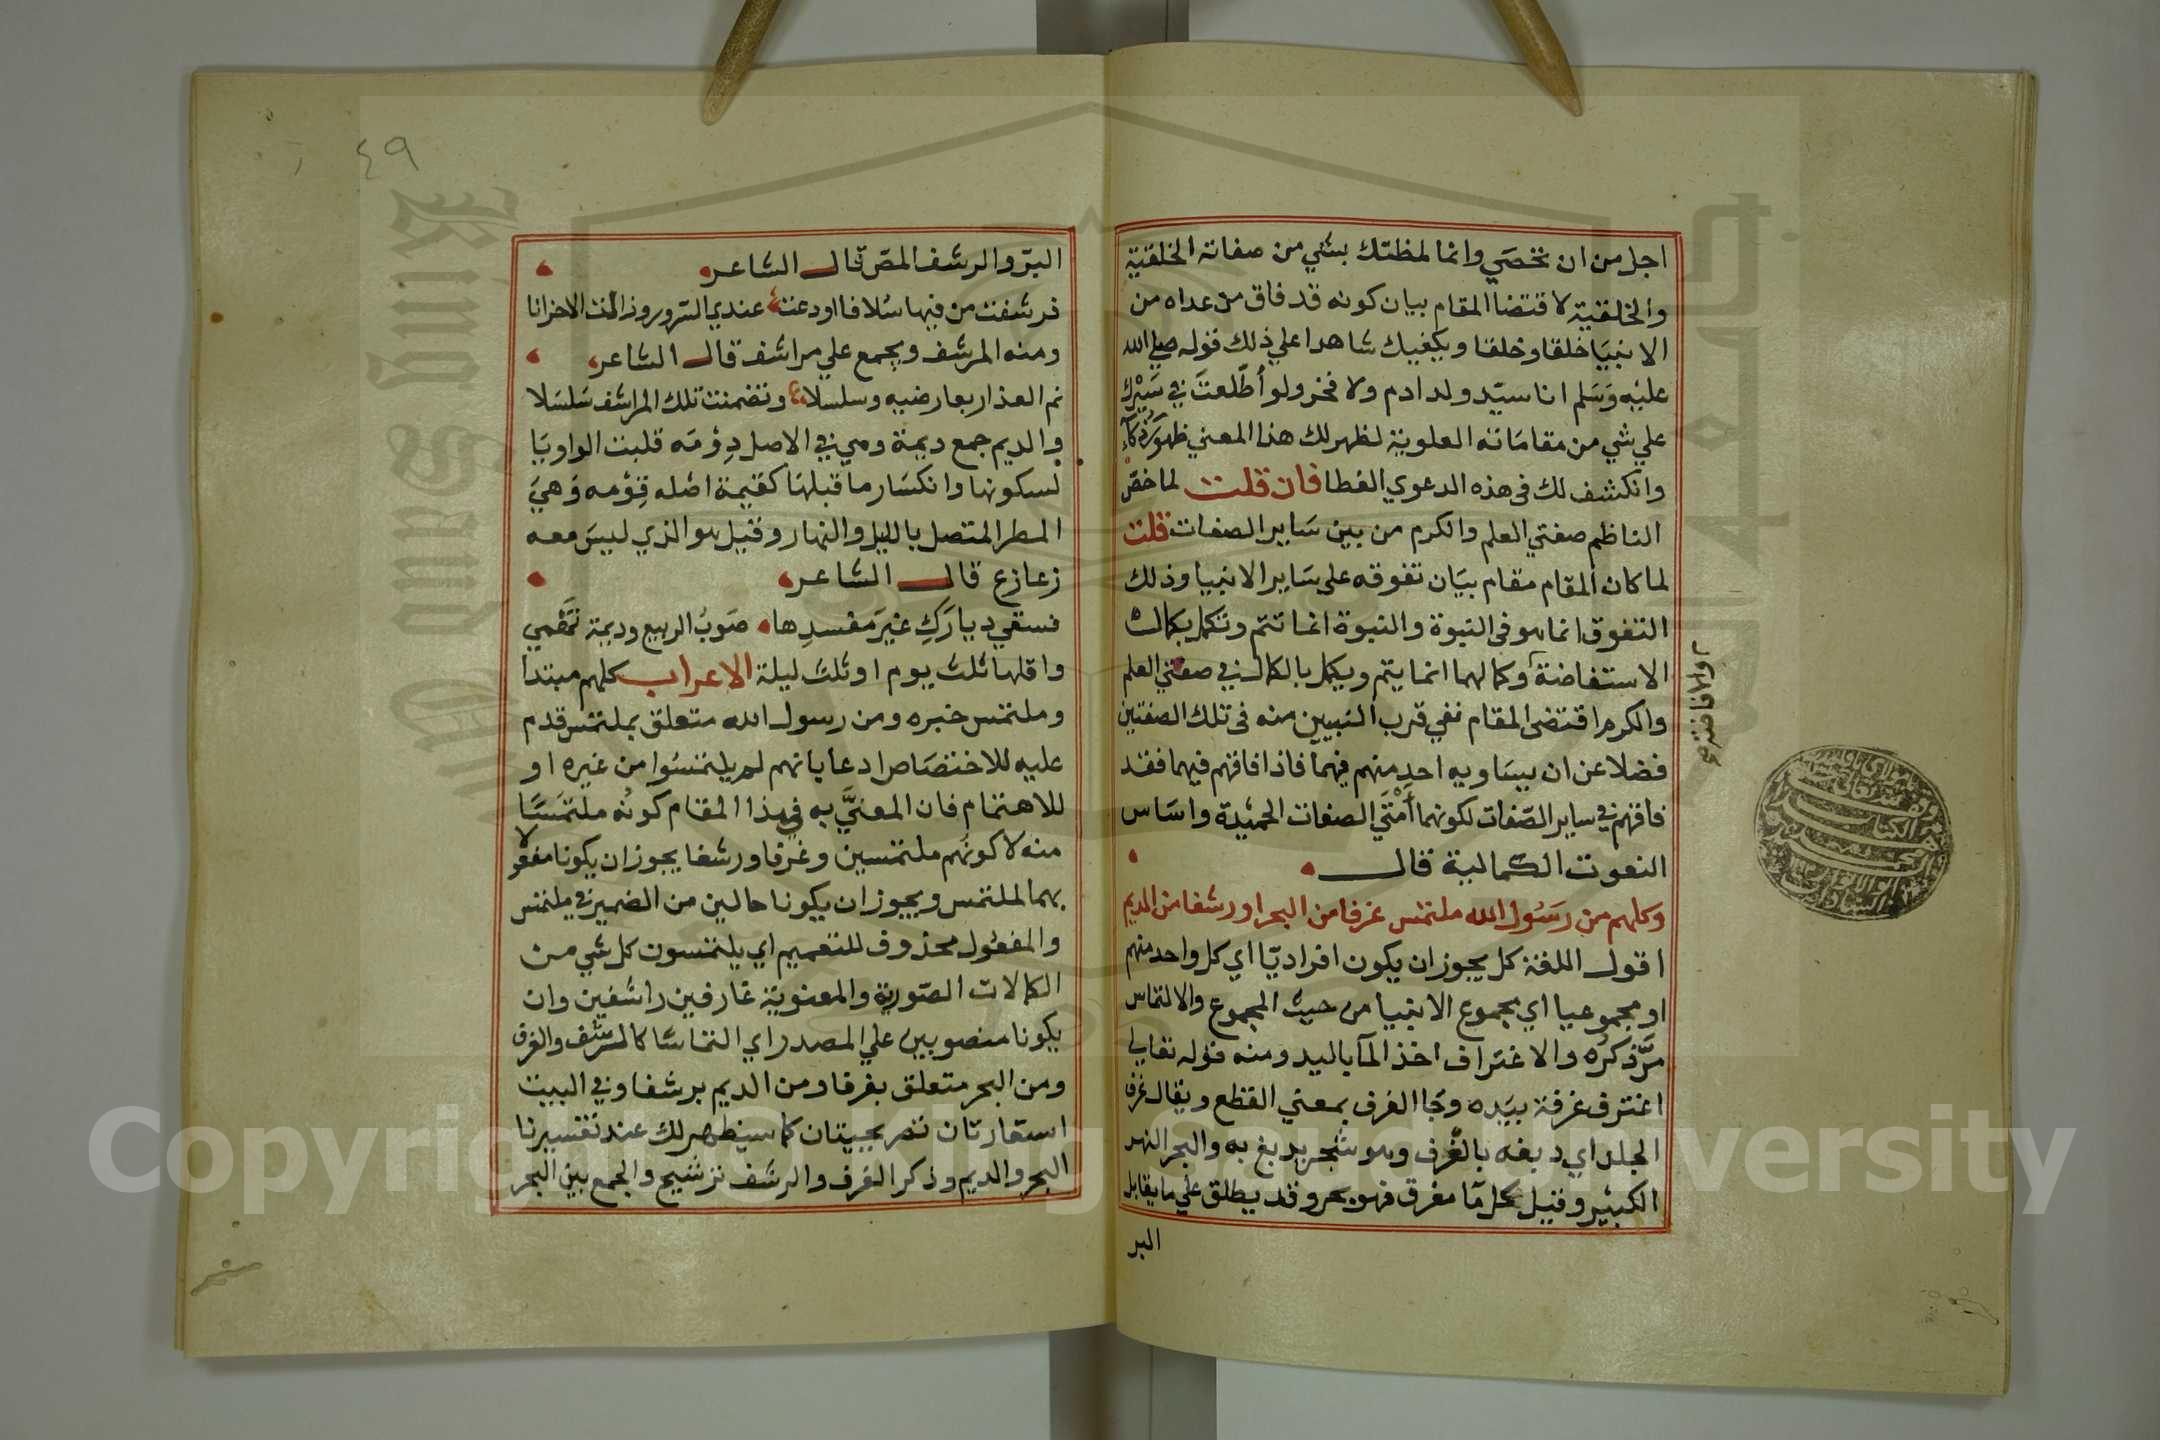 اجل من ان تحصي وانما لمظتك بشي من صفاته الخلقية
والخلقية لاقتضا المقام بيان كونه قد فاق من عداه من
الانبيا خلقا وخلقا ويكفيك شاهدا علي ذلك قوله صلي الله
عليه وسلم انا سيد ولد ادم ولا فخر ولو اُطّلعتَ في سَيْرك
علي شي من مقاماته العلوية لظهر لك هذا المعني ظهور ذكاء
وانكشف لك في هذه الدعوي الغطا فان قلت لما خص
الناظم صفتي العلم والكرم من بين ساير الصفات قلت
لما كان المقام مقام بيان تفوقه علي ساير الانبيا وذلك
التفوق انما هو في النبوة والنبوة انما تتم وتكمل بكمال
الاستفاضة وكمالهما انما يتم ويكمل بالكمال في صفتي العلم
والافاضة صح
والكرم اقتضى المقام نفي قرب النبيين منه في تلك الصفتين
فضلا عن ان يساويه احد منهم فيهما فاذا فاقهم فيهما فقد
فاقهم في ساير الصفات لكونهما اُمَّتَي الصفات الحميدة واساس
النعوت الكمالية قال
وكلهم من رسول الله ملتمس غرفا من البحر او رشفا من الديم
اقول اللغة كل يجوز ان يكون افراديّا اي كل واحد منهم
او مجموعيا اي مجموع الانبيا من حيث المجموع والالتماس
مرّ ذكره والاغتراف اخذ الما باليد ومنه قوله تعالي
اغترف غرفة بيده وجا الغرف بمعني القطع ويقال غرف
الجلد اي دبغه بالغرف وهو شجر يدبغ به والبحر النهر
الكبير وقيل كل ما مغرق فهو بحر وقد يطلق علي ما يقابل
البر
٤٩
البرّ والرشف المصّ قال الشاعر
فرشفت من فيها سلافا اودعت عندي السرور وزالت الاحزانا
ومنه المرشف ويجمع علي مراشف قال الشاعر
نم العذار بعارضيه وسلسلا وتضمنت تلك المراشف سلسلا
والديم جمع ديمة وهي في الاصل دِوْمَه قلبت الواو يا
لسكونها وانكسار ما قبلها كقيمة اصله قِوْمه وهي
المطر المتصل بالليل والنهار وقيل هو الذي ليس معه
زعازع قال الشاعر
فسقي ديارَكِ غيرَ مفسدِها صَوبُ الربيع وديمة تَهْمي
واقلها ثلث يوم او ثلث ليلة الاعراب كلهم مبتدا
وملتمس خبره ومن رسول الله متعلق بملتمس قدم
عليه للاختصاص ادعا بانهم لم يلتمسوا من غيره او
للاهتمام فان المعنيَّ به في هذا المقام كونُه ملتمَسًا
منه لا كونُهم ملتمسين وغرفا ورشفا يجوز ان يكونا مفعولا
بهما لملتمس ويجوز ان يكونا حالين من الضمير في ملتمس
والمفعول محذوف للتعميم اي يلتمسون كل شي من
الكمالات الصورية والمعنوية غارفين راشفين وان
يكونا منصوبين علي المصدر اي التماسا كالرشف والغرف
ومن البحر متعلق بغرفا ومن الديم برشفا وفي البيت
استعارتان تصريحيتان كما سيظهر لك عند تفسيرنا
البحر والديم وذكر الغرف والرشف ترشيح والجمع بين البحر
Copyright © King Saud University